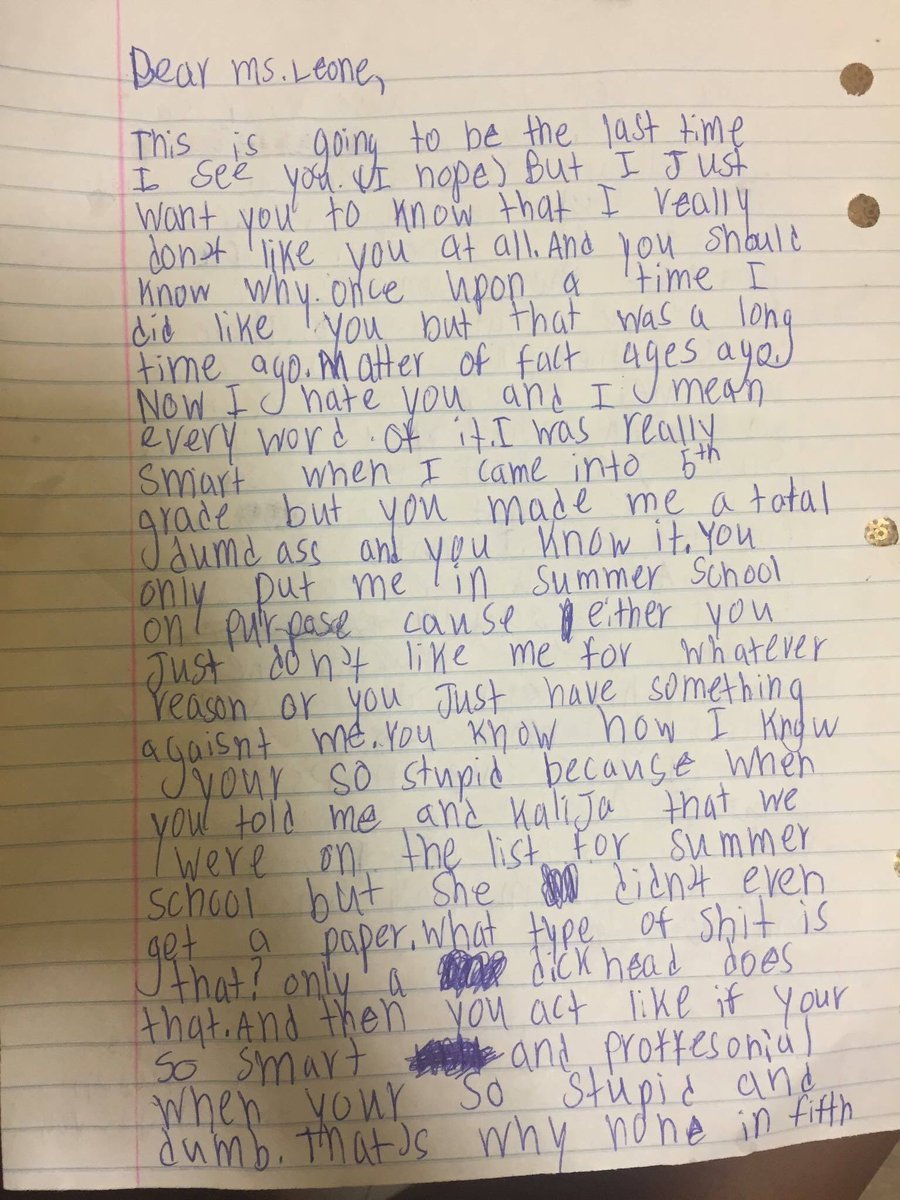 Dear Ms. Leone,
This is going to be the last time
I see you. (I hope) But I Just
want you to know that I really
don't like you at all. And you should
know why. once upon a time I
did like you but that was a long
time ago. Matter of fact ages ago.
Now I hate you and I mean
every word of it. I was really
smart when I came into 5th
grade but you made me a total
dumd ass and you know it. You
only put me in summer school
on purpase cause either you
Just don't like me for whatever
reason or you Just have something
agaisnt me. You know how I know
your so stupid because when
you told me and Kalija that we
were on the list for summer
school but she didn't even
get a paper. What type of shit is
that? only a dick head does
that. And then you act like if your
so smart and proffesonial
when your so stupid and
dumb. That's why none in fifth